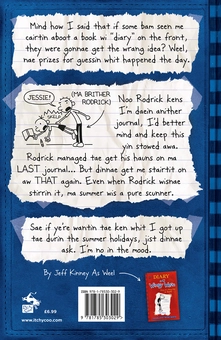 Mind how I said that if some bam seen me
cairtin aboot a book wi "diary" on the front,
they were gonnae get the wrang idea? Weel,
nae prizes for guessin whit happened the day.
JESSIE!
(MA BRITHER
RODRICK)
Noo Rodrick kens
I'm daein anither
journal, I'd better
mind and keep this
yin stowed awa.
Rodrick managed tae get his hauns on ma
LAST journal... But dinnae get me stairtit on
aw THAT again. Even when Rodrick wisnae
stirrin it, ma summer wis a pure scunner.
Sae if ye're wantin tae ken whit I got up
tae durin the summer holidays, jist dinnae
ask. I'm no in the mood.
By Jeff Kinney As Weel
DIARY
Wimpy Wean
£6.99
www.itchycoo.com
9 781785 303029